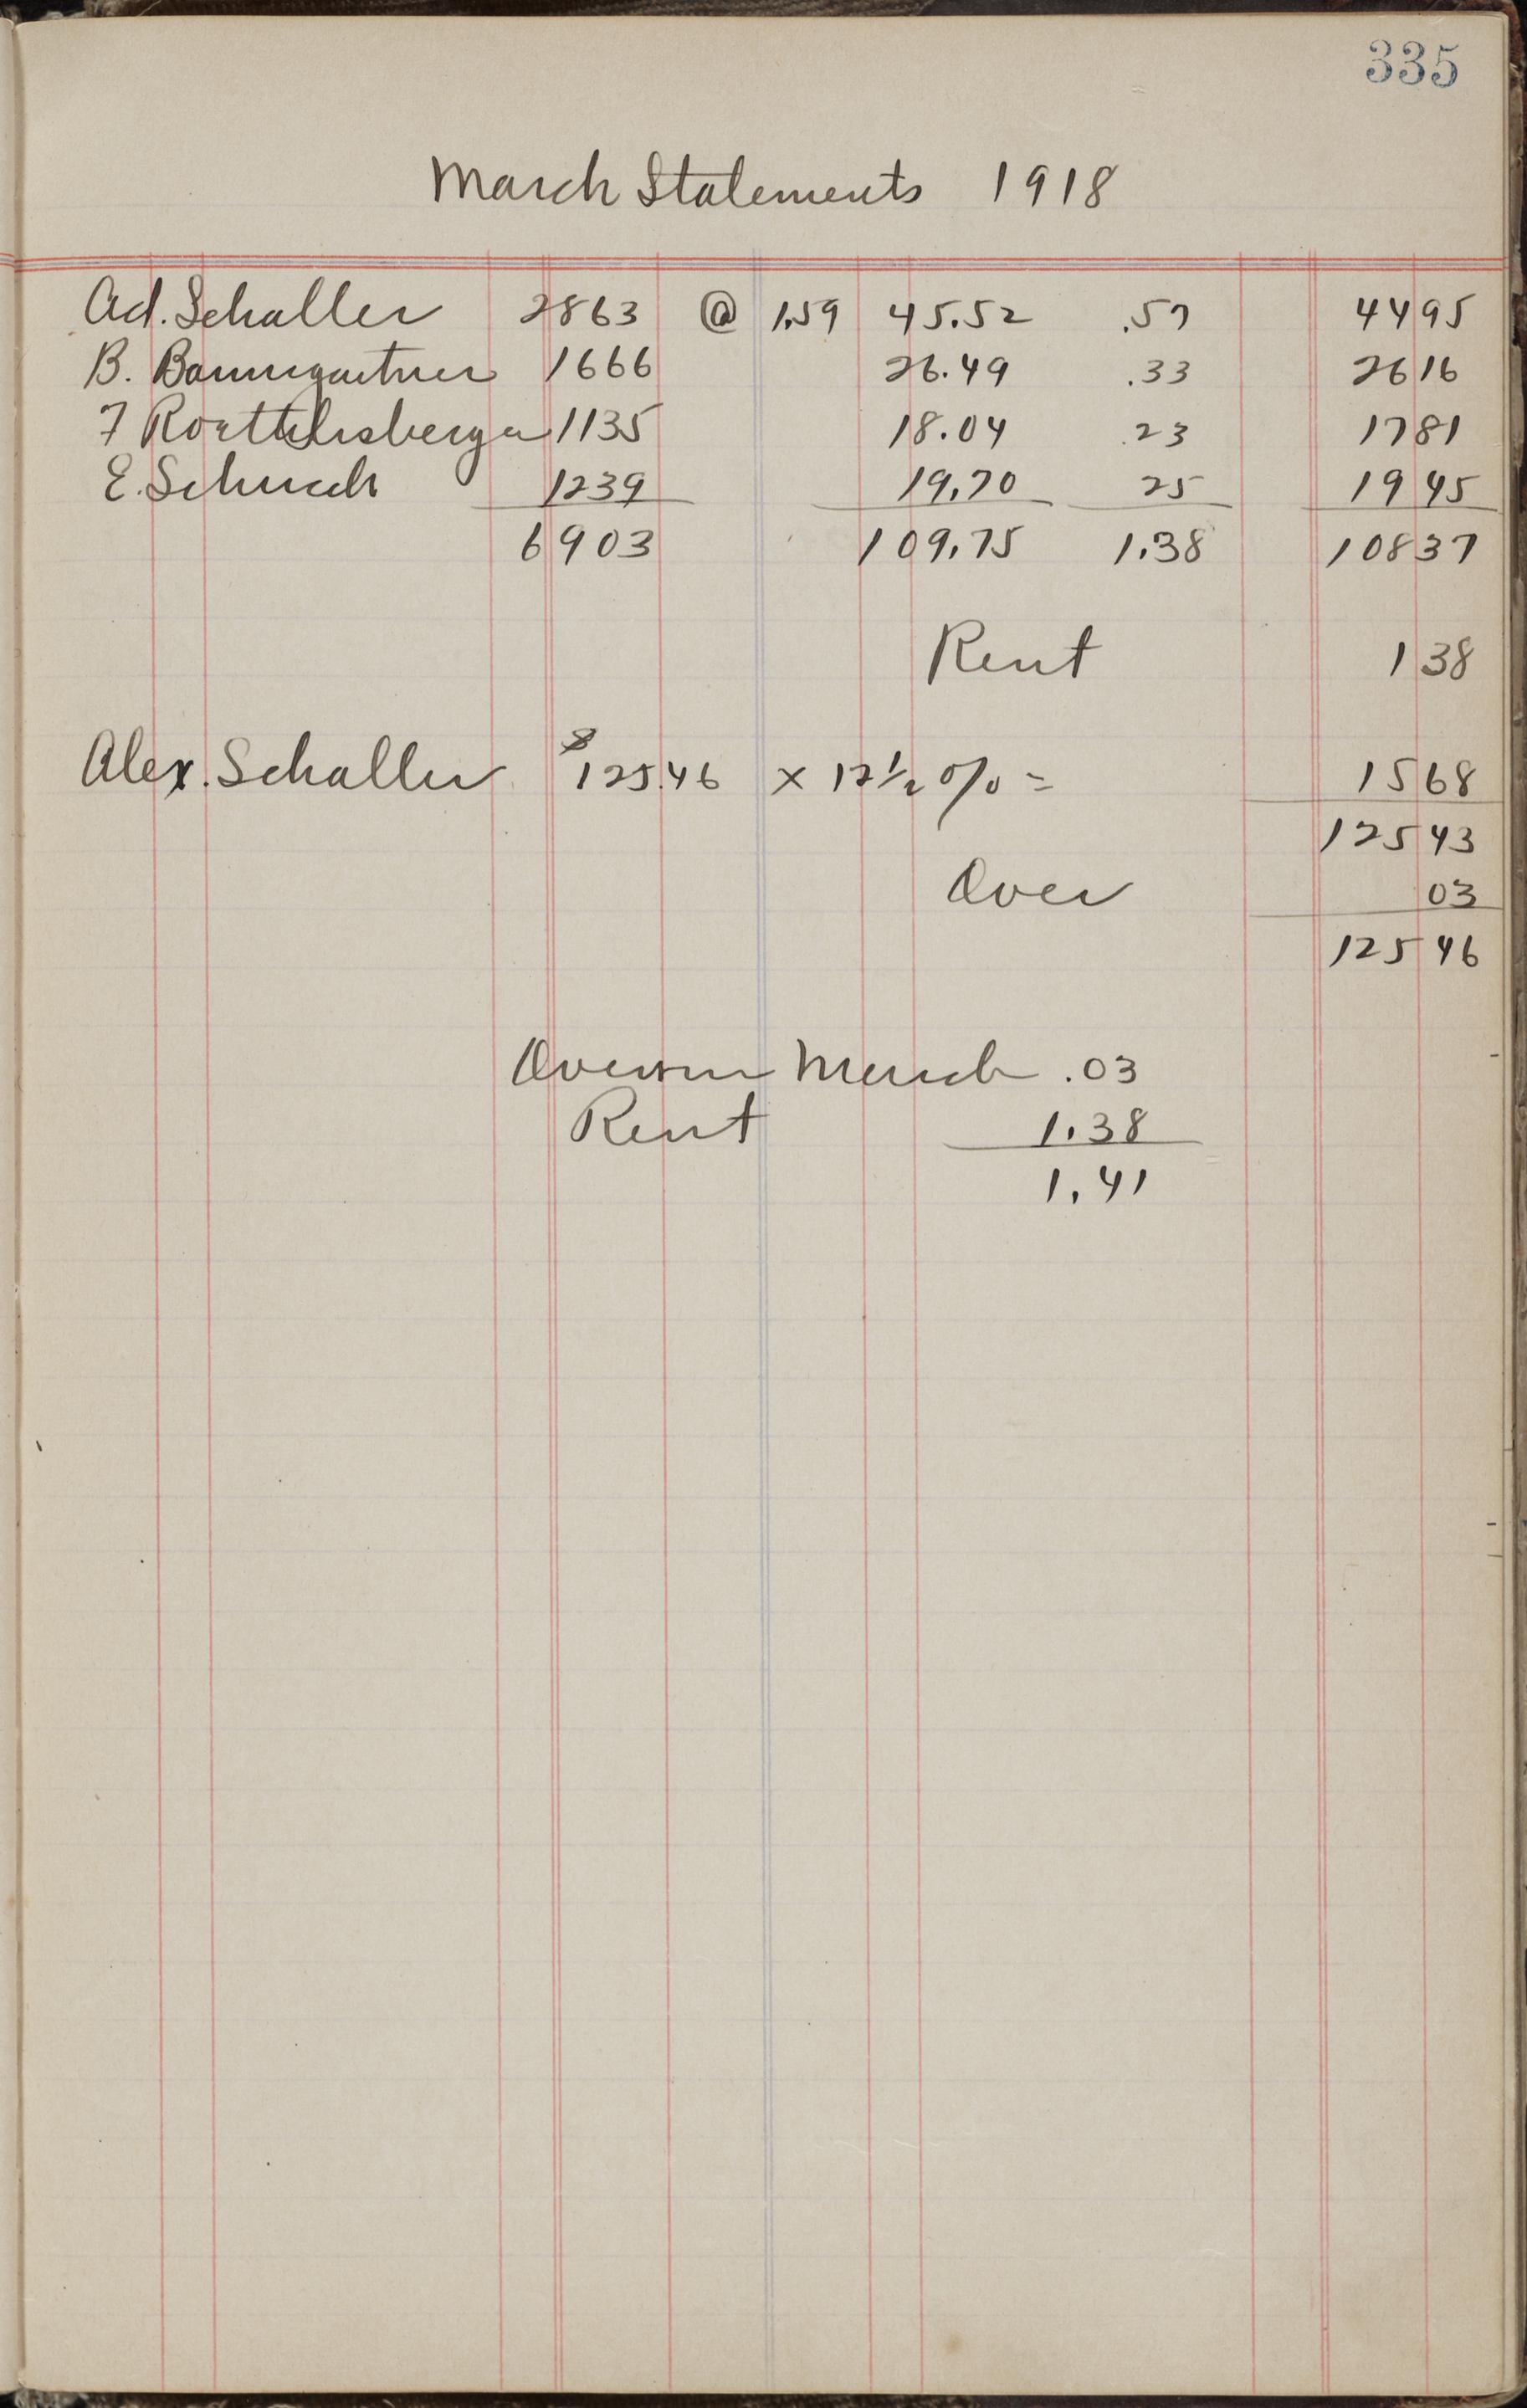 335
March Statements 1918
Ad. Schaller 2863 @ 1.59 45.52 .57 44 95
B. Baumgartner 1666 26.49 .33 26 16
F Roethlisberger 1135 18.04 .23 17 81
E. Schuch 1239 19.70 25 19 45
6903 109.75 1.38 108 37
Rent 1 38
Alex. Schaller $125.46 × 12½ % = 15 68
125 43
Over 03
125 46
Overrun March .03
Rent 1.38
1.41